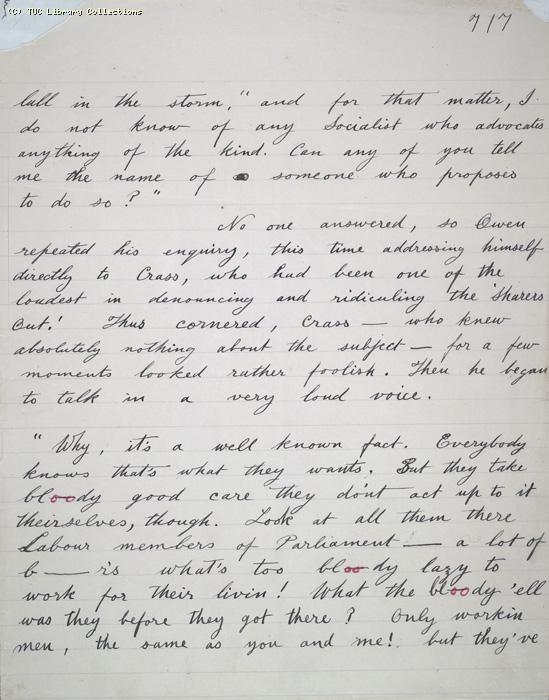 (C) TUC Library Collections
717
lull in the storm," and for that matter, I
do not know of any Socialist who advocates
anything of the kind. Can any of you tell
me the name of someone who proposes
to do so?"
No one answered, so Owen
repeated his enquiry, this time addressing himself
directly to Crass, who had been one of the
loudest in denouncing and ridiculing the 'Sharers
Out.' Thus cornered, Crass — who knew
absolutely nothing about the subject — for a few
moments looked rather foolish. Then he began
to talk in a very loud voice.
"Why, it's a well known fact. Everybody
knows that's what they wants. But they take
bloody good care they don't act up to it
theirselves, though. Look at all them there
Labour members of Parliament — a lot of
b——r's what's too bloody lazy to
work for their livin! What the bloody 'ell
was they before they got there? Only workin
men, the same as you and me! but they've